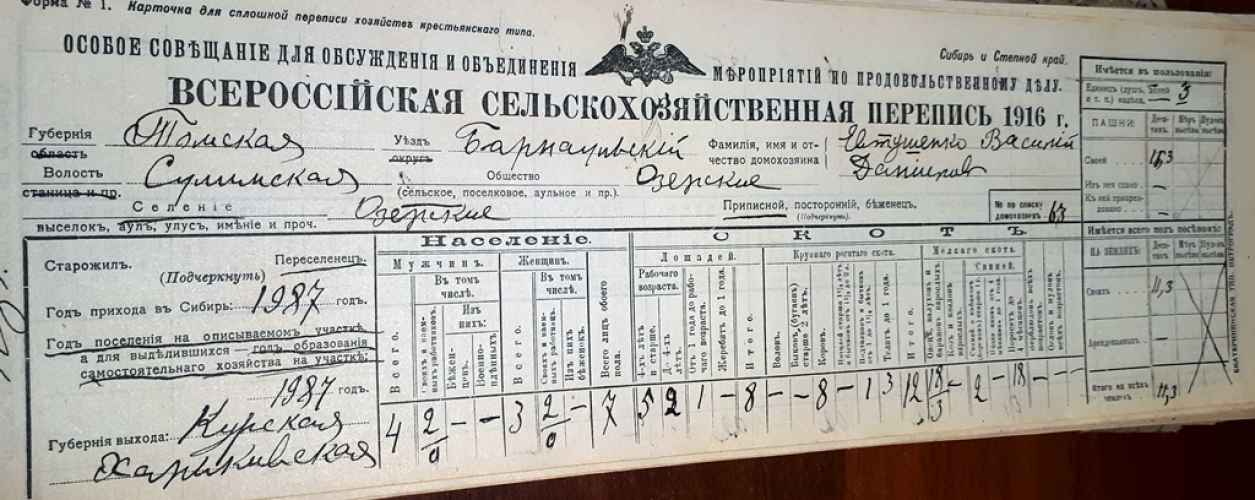 Форма № 1. Карточка для сплошной переписи хозяйствъ крестьянскаго типа.
Сибирь и Степной край.
ОСОБОЕ СОВѢЩАНІЕ ДЛЯ ОБСУЖДЕНІЯ И ОБЪЕДИНЕНІЯ МѢРОПРІЯТІЙ ПО ПРОДОВОЛЬСТВЕННОМУ ДѢЛУ.
ВСЕРОССІЙСКАЯ СЕЛЬСКОХОЗЯЙСТВЕННАЯ ПЕРЕПИСЬ 1916 г.
Губернія Томская Уѣздъ Барнаульскій Фамилія, имя и от- Евтушенко Василій
область округъ чество домохозяина Данилов
Волость Сулимская Общество Озерские
станица и пр. (сельское, поселковое, аульное и пр.)
Селеніе Озерские Приписной, посторонній, бѣженецъ. № по списку 63
выселокъ, аулъ, улусъ, имѣніе и проч. (Подчеркнуть). домохозяевъ
Старожилъ. Переселенецъ.
(Подчеркнуть)
Годъ прихода въ Сибирь: 1987 годъ.
Годъ поселенія на описываемомъ участкѣ,
а для выдѣлившихся — годъ образованія
самостоятельнаго хозяйства на участкѣ:
1987 годъ.
Губернія выхода: Курская
Харьковская
Населеніе.
Мужчинъ. Женщинъ.
Всего.
Въ томъ числѣ.
Своихъ и наемныхъ работниковъ.
Изъ нихъ:
Бѣженцевъ.
Военноплѣнныхъ
Всего.
Въ томъ числѣ.
Изъ нихъ бѣженокъ.
Всего лицъ обоего пола.
4 2/0 – – 3 2/0 – 7
СКОТЪ
Лошадей.
Рабочаго возраста.
4-хъ лѣтъ и старше.
До 4-хъ лѣтъ.
Отъ 1 года до рабочаго возраста.
Жеребятъ до 1 года.
Итого
Крупнаго рогатаго скота.
Воловъ.
Быковъ (бугаевъ) старше 2 лѣтъ.
Коровъ.
Телятъ до 1 года.
Итого
Мелкаго скота.
Свиней.
5 2 1 – 8 – – 8 – 1 3 12 18/3 – 2 – 18 – –
Имѣется въ пользованіи:
Единицъ (душ. долей и т. п.) надѣла. 3
ПАШНИ: Деся-тинъ.
Своей 15,3
Изъ нея сдано –
Къ ней прирендовано –
Имѣется всего подъ посѣвомъ:
НА ЗЕМЛЯХЪ: Деся-тинъ.
Своихъ 11,3
Арендованныхъ –
Итого на всѣхъ земляхъ 11,3